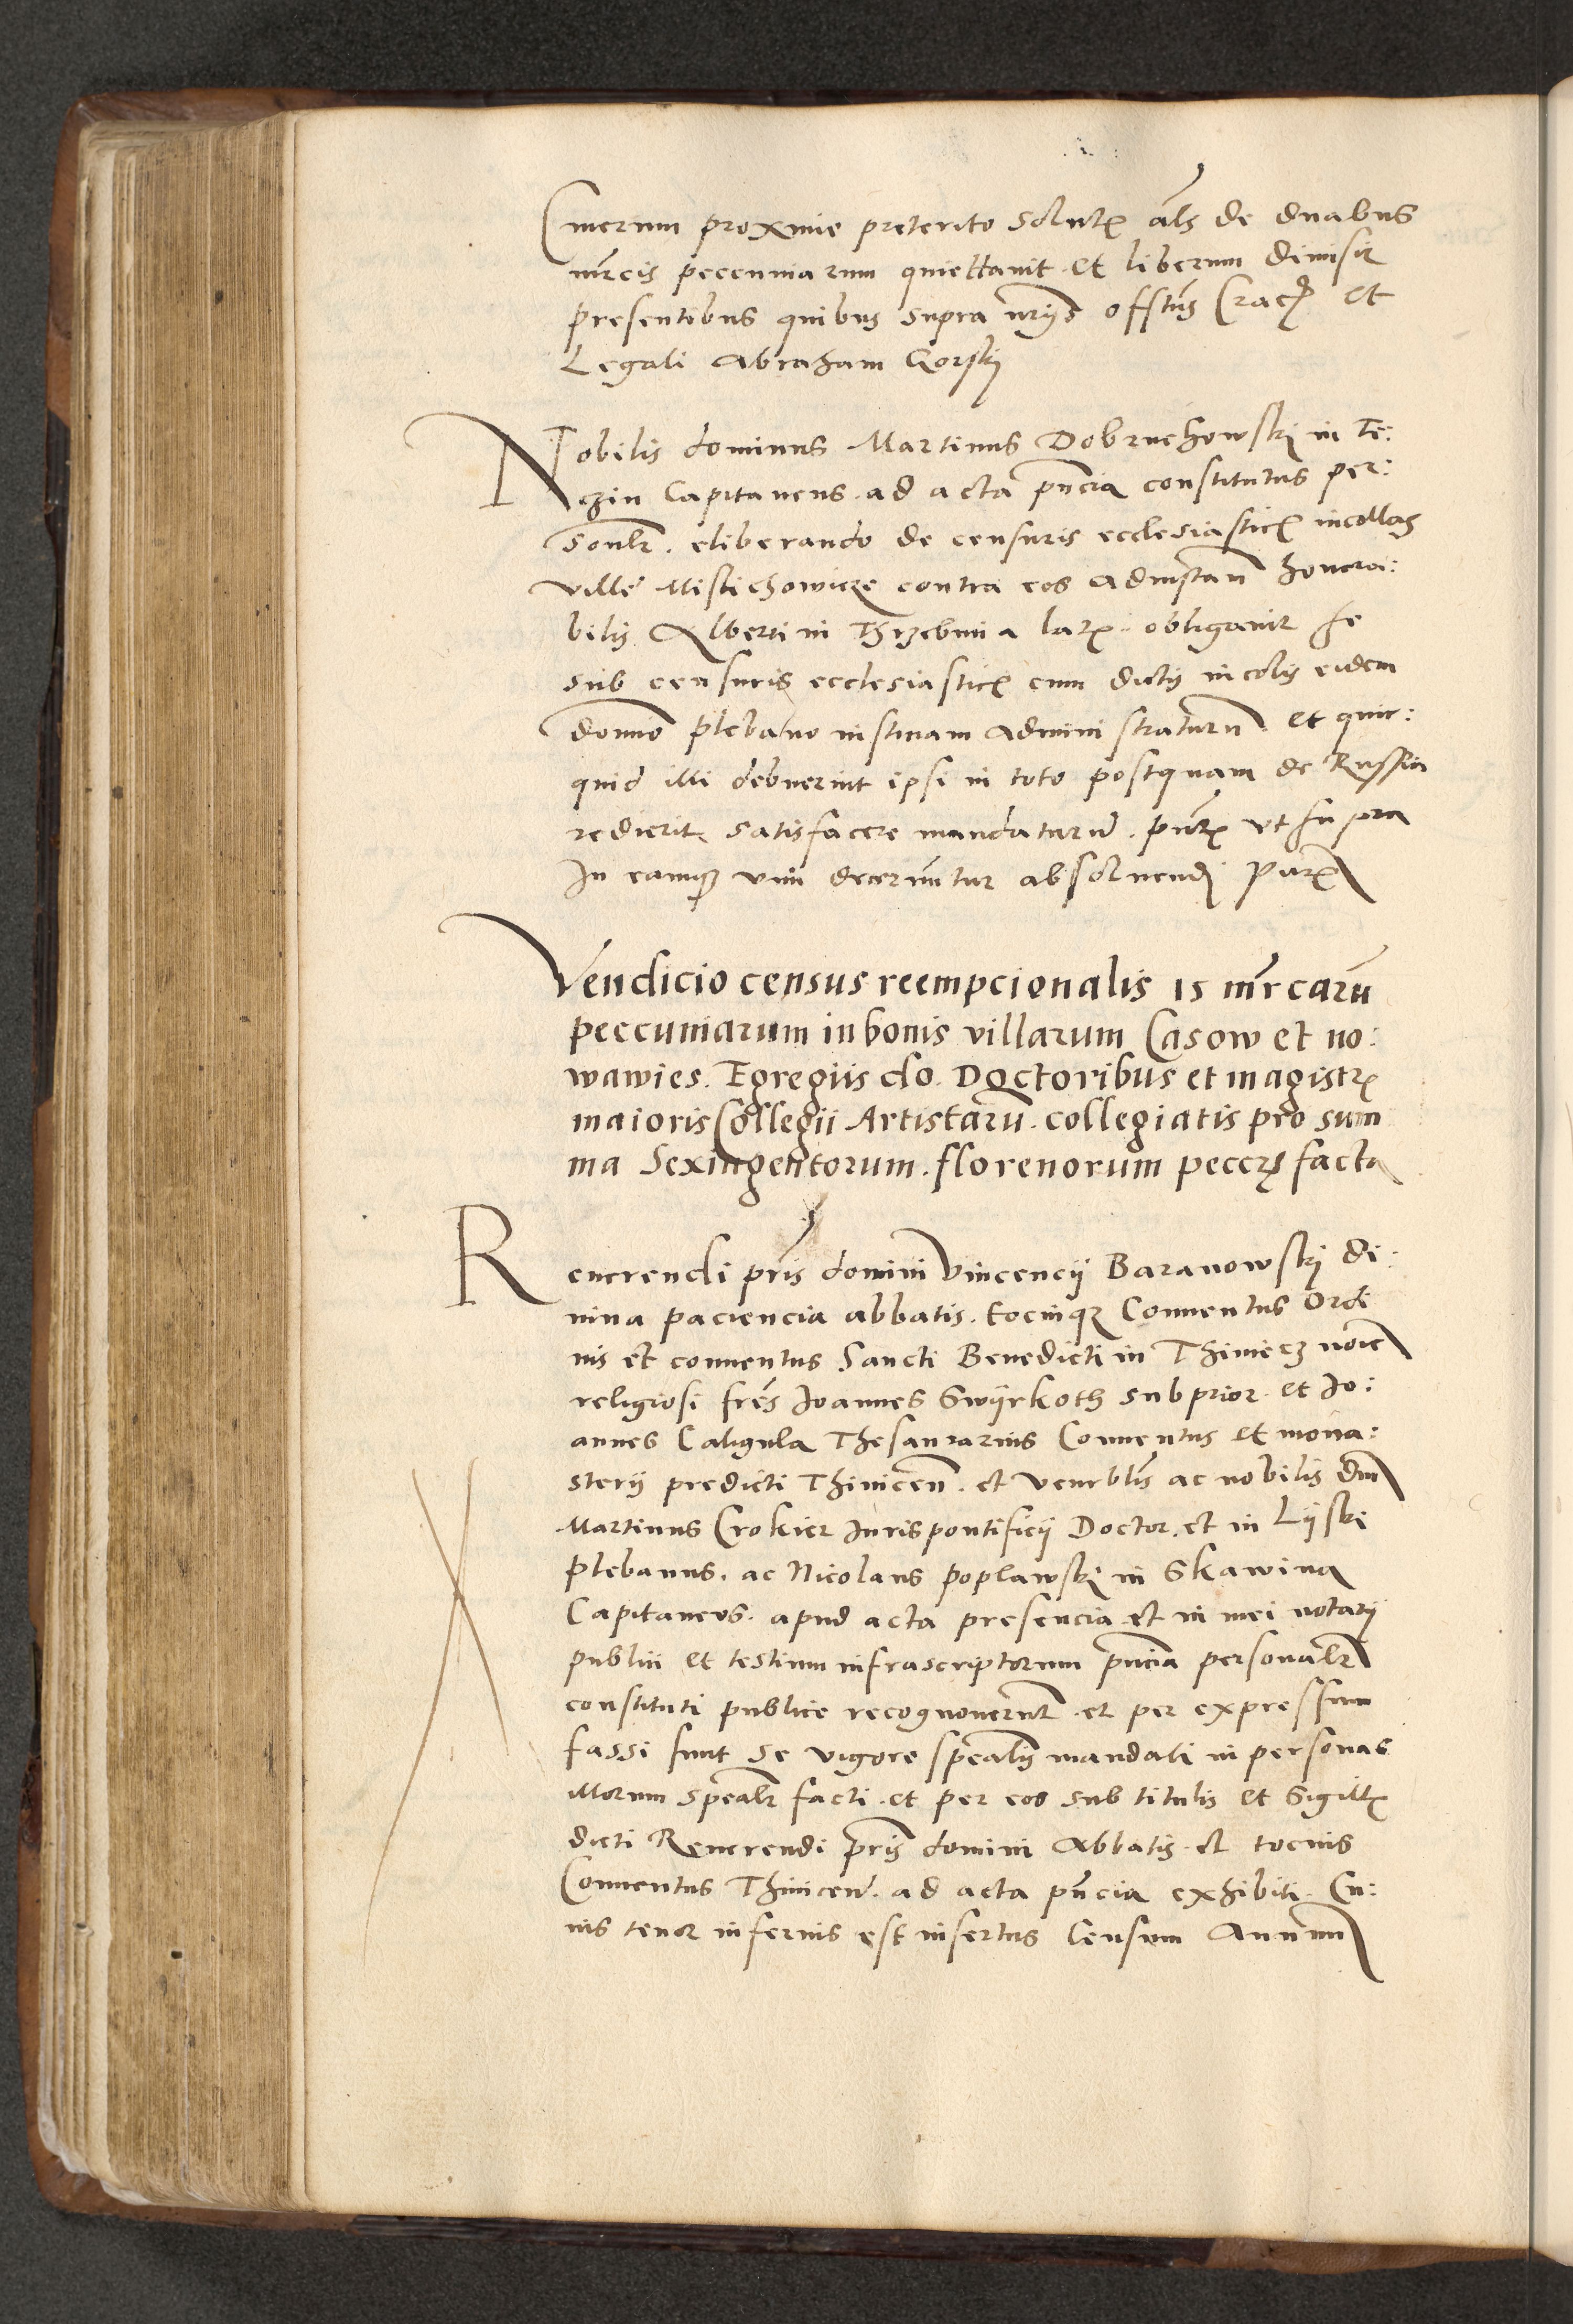 Cinerum proxime preterito solutẽ als de duabus
mr̃cis pecuniarum quiettavit et liberum dimisit
presentibus quibus supra nr̃ijs offs Crac et
Legali Abraham Gorski
Nobilis dominus Martinus Dobruchowski in Te:
czin Capitaneus ad acta pñcia constitutus per:
sonlr̃. eliberando de censuris ecclesiasticꝭ incollas
ville Misti chowicze contra eos ad instan̄ honora:
bilis Alberti in Thrzebinia latꝭ. obligavit se
sub censuris ecclesiasticꝭ cum dictis incolis eidem
domĩo plebano iusticiam administraturũ et quic:
quid illi debuerint ipsi in toto postquam de Russia
redierit satisfacere mandaturũ. pñtꝭ vt supra
In eamqꝫ vim decernũtur absoluendi
Vendicio census reempcionalis 15 mr̃carũ
peccuniarum in bonis villarum Casow et no:
wawies. Egregiis do. Doctoribus et magistrꝭ
maioris Collegii Artistarũ. collegiatis pro sum
ma Sexingentorum. florenorum peccꝭ facta
Reuerendi pr̃is domini Vincencij Baranowski di:
uina paciencia abbatis. tociusqꝫ Conuentus Ordi
nis et conuentus Sancti Benedicti in Thiniecz noĩe
religiosi fr̃es Joannes Swijrkoth subprior et Jo:
annes Caligula Thesaurarius Conuentus et mona:
sterij predicti Thinicen̄. et venerblis ac nobilis dñi
Martinus Crokier Juris pontificij Doctor. et in Lijski
plebanus. ac Nicolaus poplawski in Skawina
Capitaneus. apud acta presencia et in mei notarij
publici et testium infrascriptorum pñcia personalr̃
constituti publice recognouerũt et per expressum
fassi sunt se vigore spealis mandati in personas
illorum spealr̃ facti et per eos sub titulis et Sigillꝭ
dicti Reuerendi pr̃is domini Abbatis et tocius
Conuentus Thinicen̄. ad acta pñcia exhibiti. Cu:
ius tenor inferius est insertus Censum Annuũ